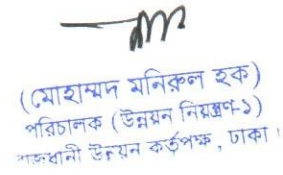 (মোহাম্মদ মনিরুল হক)
পরিচালক (উন্নয়ন নিয়ন্ত্রণ-১)
রাজধানী উন্নয়ন কর্তৃপক্ষ, ঢাকা।